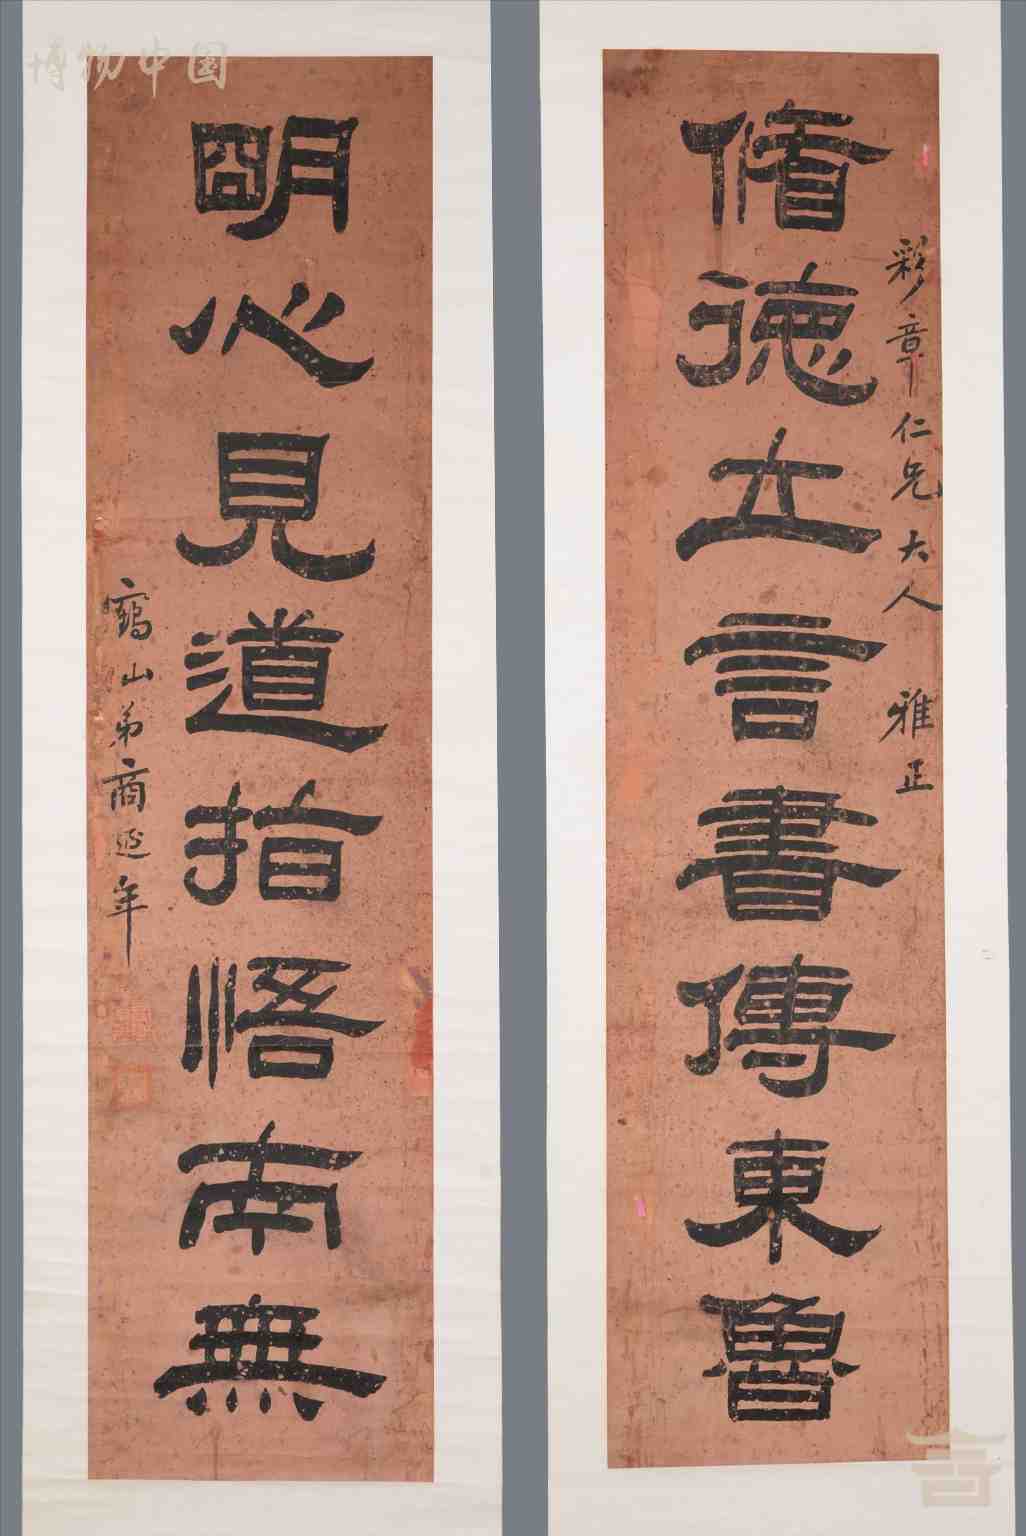 彩章仁兄大人 雅正
脩德立言書傳東魯
明心見道指悟南無
鶴山弟商延年
博物中国